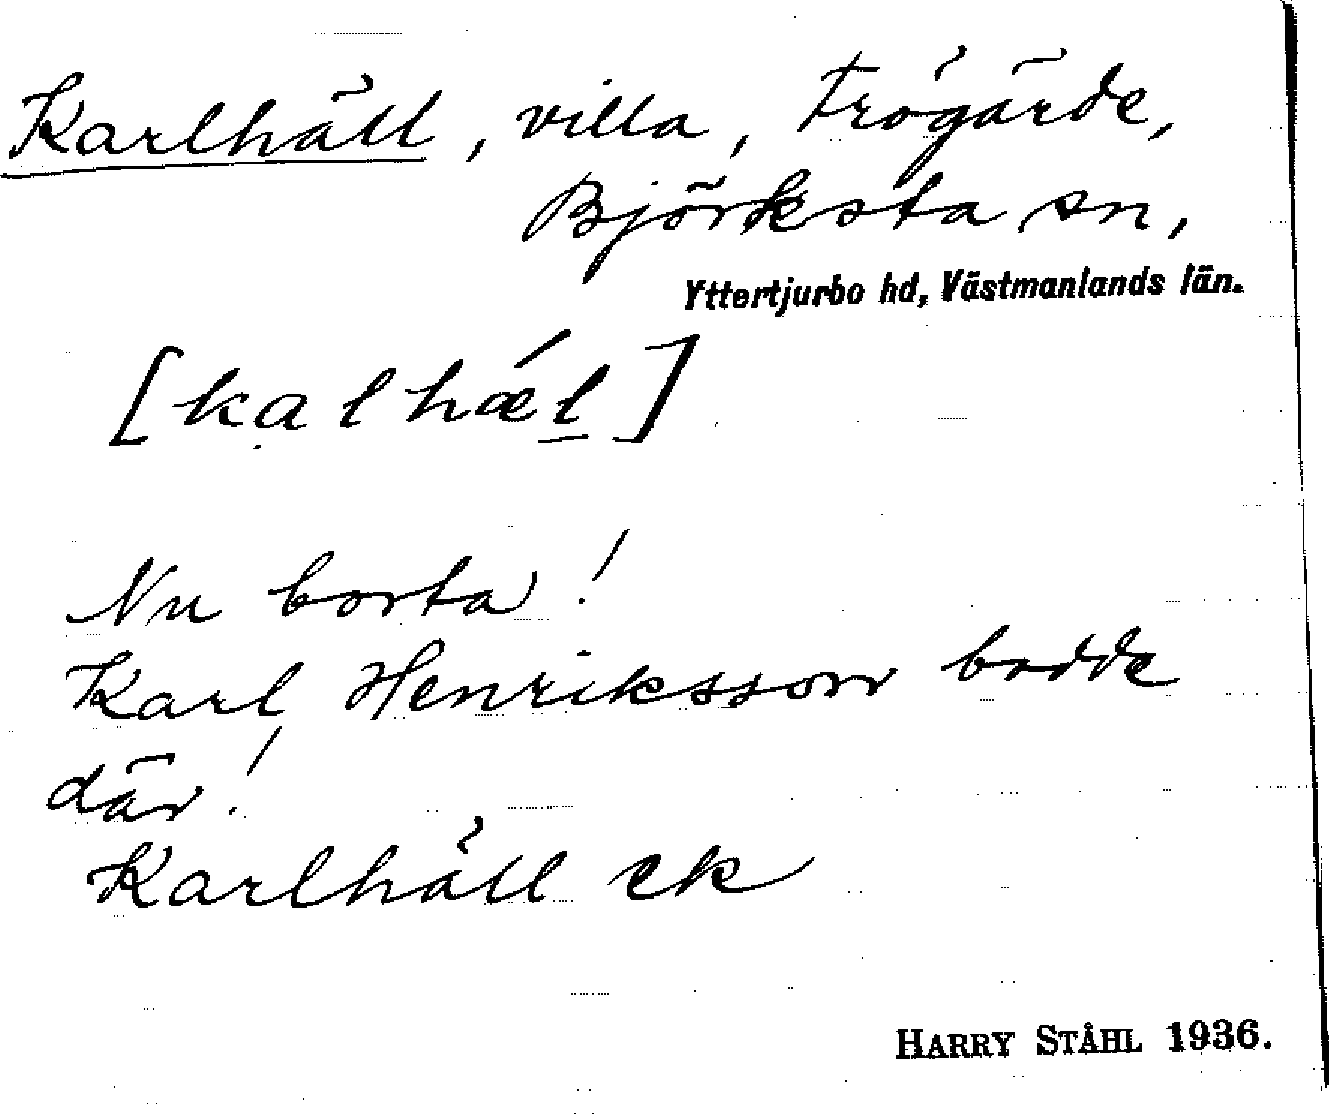 Karlhäll, villa, Frögärde,
Björksta sn,
Yttertjurbo hd, Västmanlands län.
[kạlhǽl̲]
Nu borta!
Karl Henriksson bodde
där!
Karlhäll ek
HARRY STÅHL 1936.